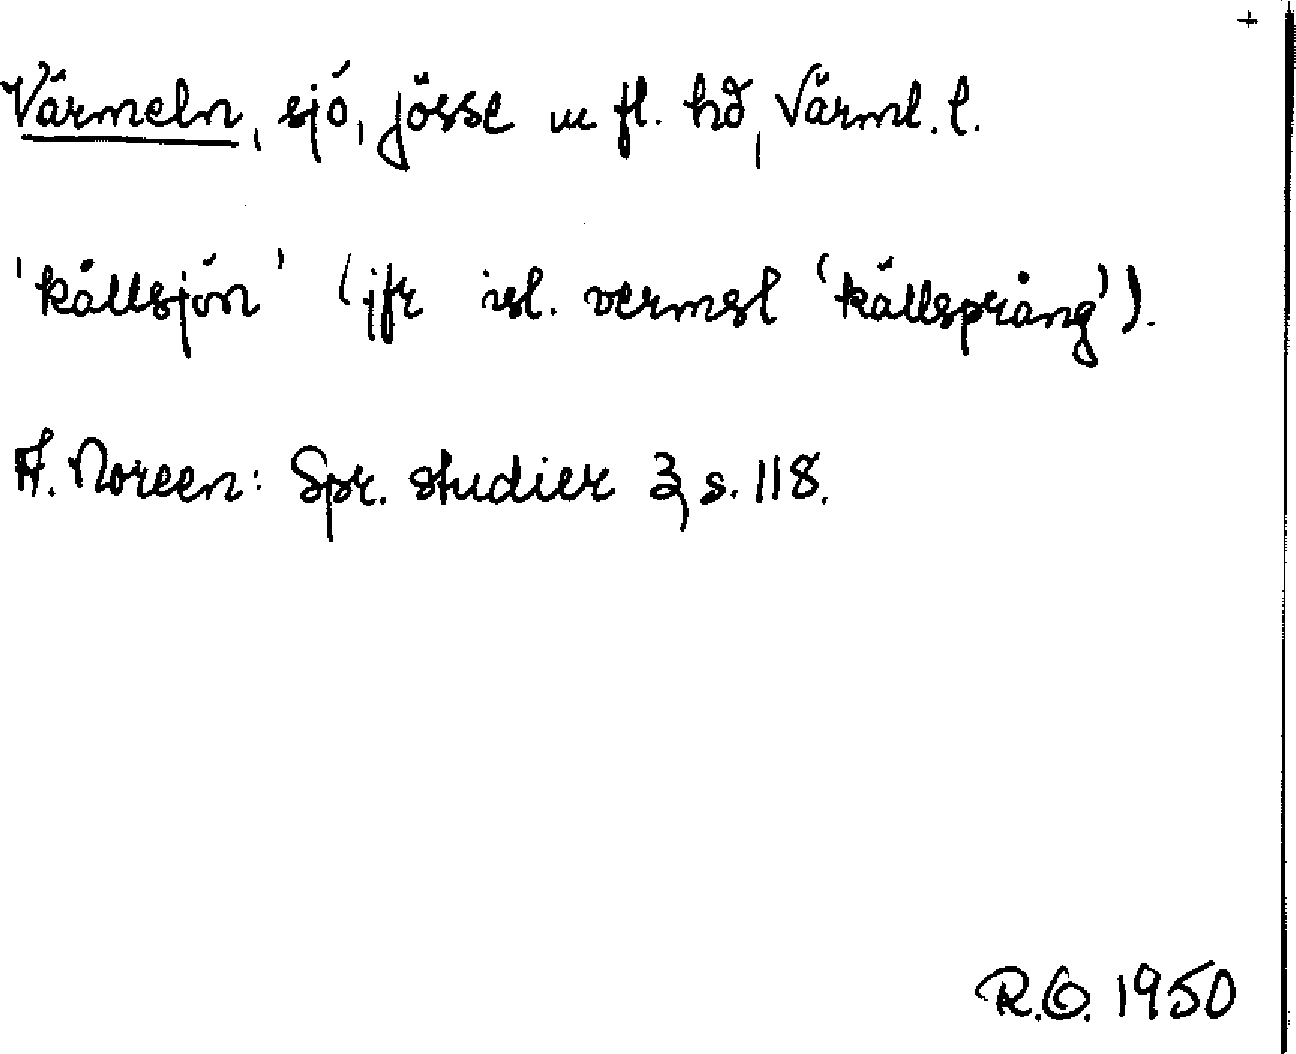 +
Värmeln, sjö, Jösse m fl. hd, Värml. l.
'källsjön' (jfr isl. vermsl 'källsprång').
A. Noreen: Spr. studier 3, s. 118.
R.O. 1950